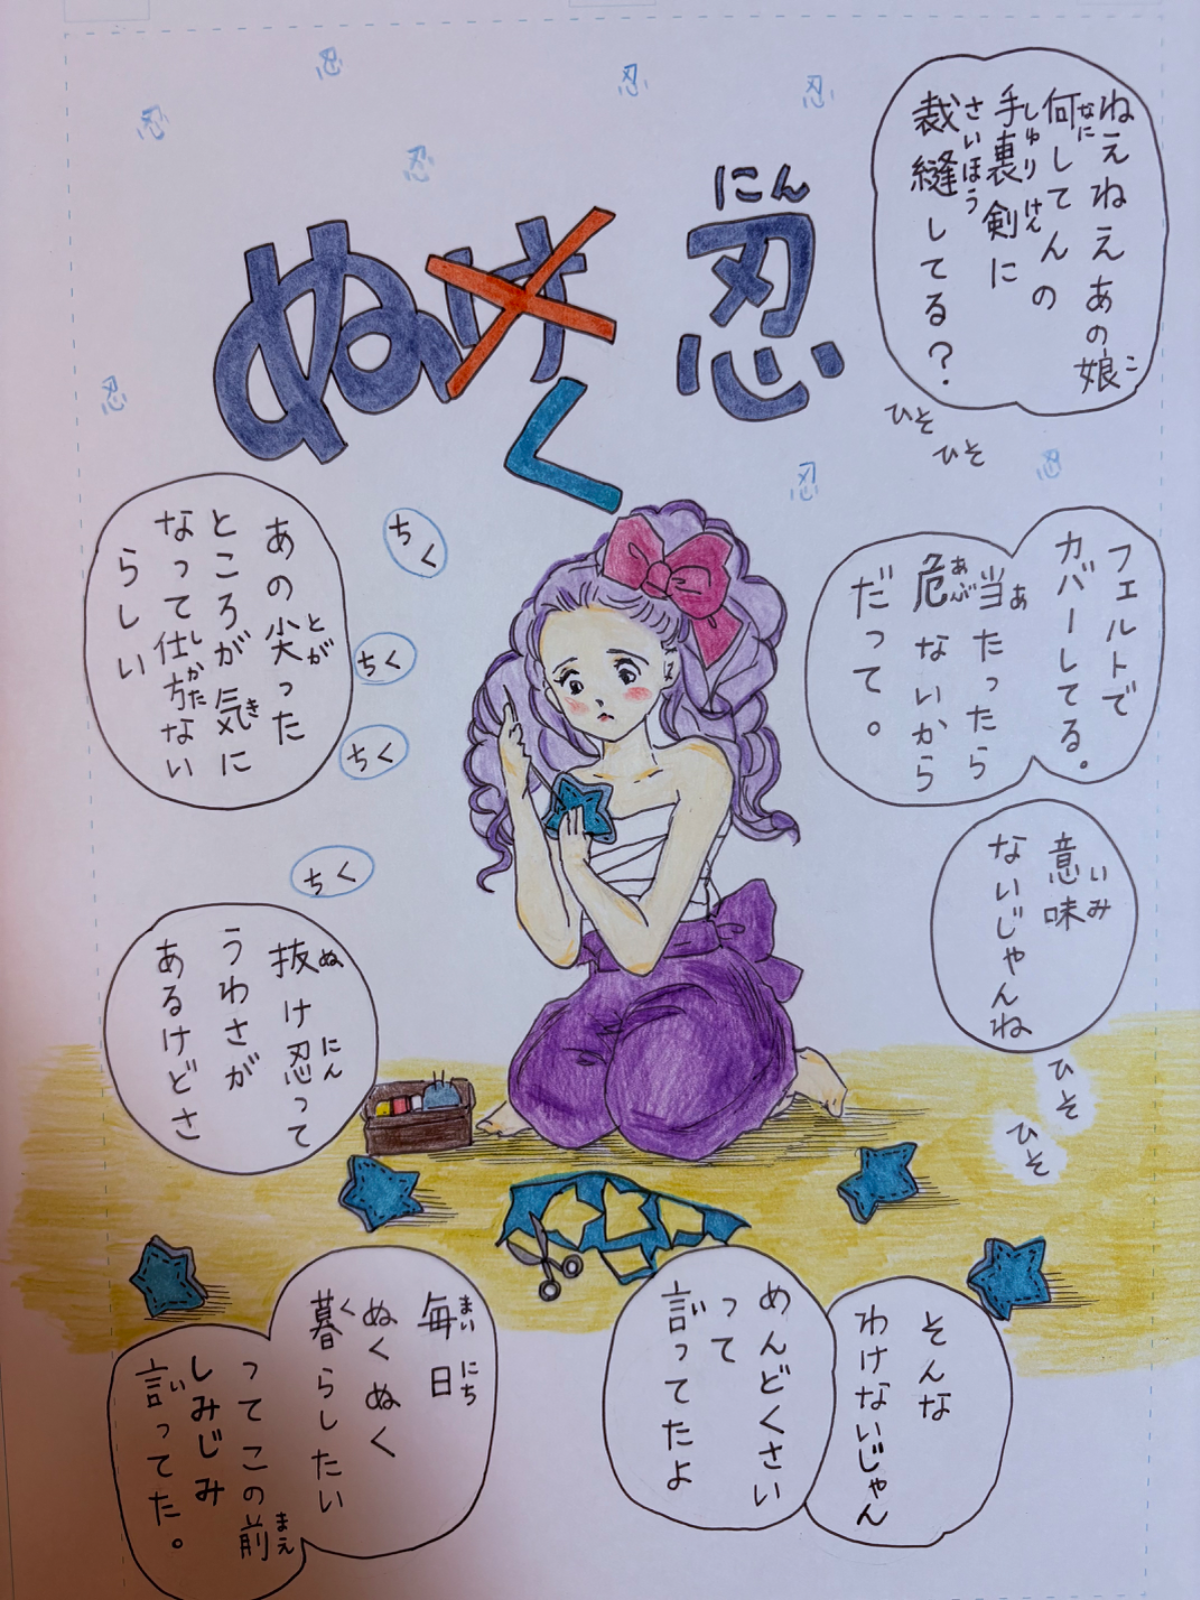 忍
忍
忍
忍
忍
忍
忍
忍
にん
忍
ぬけ
く
ねえねえあの娘コ
何なにしてんの
手裏剣しゅりけんに
裁縫さいほうしてる？
ひそ
ひそ
フェルトで
カバーしてる。
当あたったら
危あぶないから
だって。
意味いみ
ないじゃんね
ひそ
ひそ
ちく
ちく
ちく
ちく
あの尖とがった
ところが気きに
なって仕方しかたない
らしい
抜ぬけ忍にんって
うわさが
あるけどさ
そんな
わけないじゃん
めんどくさい
って
言いってたよ
毎日まいにち
ぬくぬく
暮くらしたい
ってこの前まえ
しみじみ
言いってた。